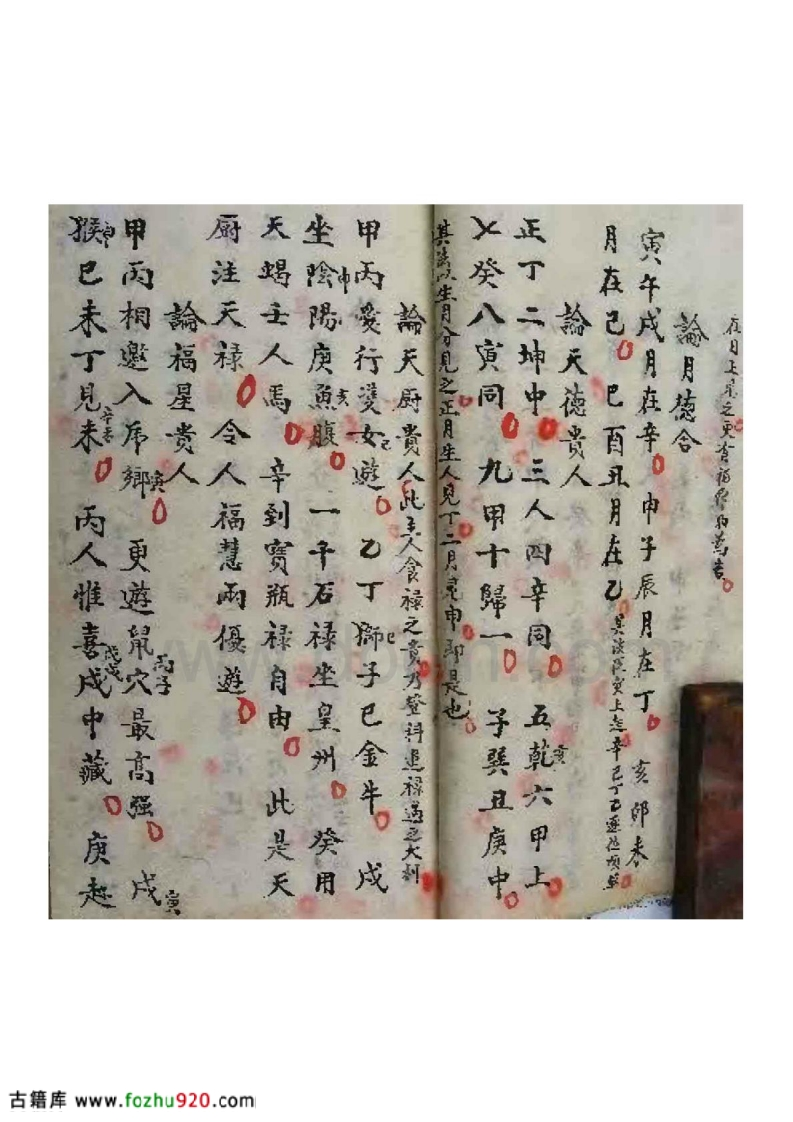 在月上是之更
論月德合
寅午戌月在辛 申子辰月在丁 亥卯未
月在己 巳酉丑月在乙 其法從寅上起辛己丁乙
論天德貴人
正丁二坤中 三人四辛同 五乾亥六甲上
七癸八寅同 九甲十歸一 子巽丑庚中
其法以生月分見之正月生人見丁二月見申即是也
論天厨貴人 此主人食祿之貴乃登科進祿遇之大利
甲丙愛行雙女遊巳 乙丁獅子巳金牛 戊
坐陰陽申庚魚腹亥 一千石祿坐皇州 癸用
天蝎壬人馬 辛到寶瓶祿自由 此是天
厨注天祿 令人福慧兩優遊
論福星貴人
甲丙相邀入虎鄉寅 更遊鼠穴丙子最高强 戌寅
猴申巳未丁見未辛未 丙人惟喜戌戊戌中藏 庚趁
古籍库 www.fozhu920.com